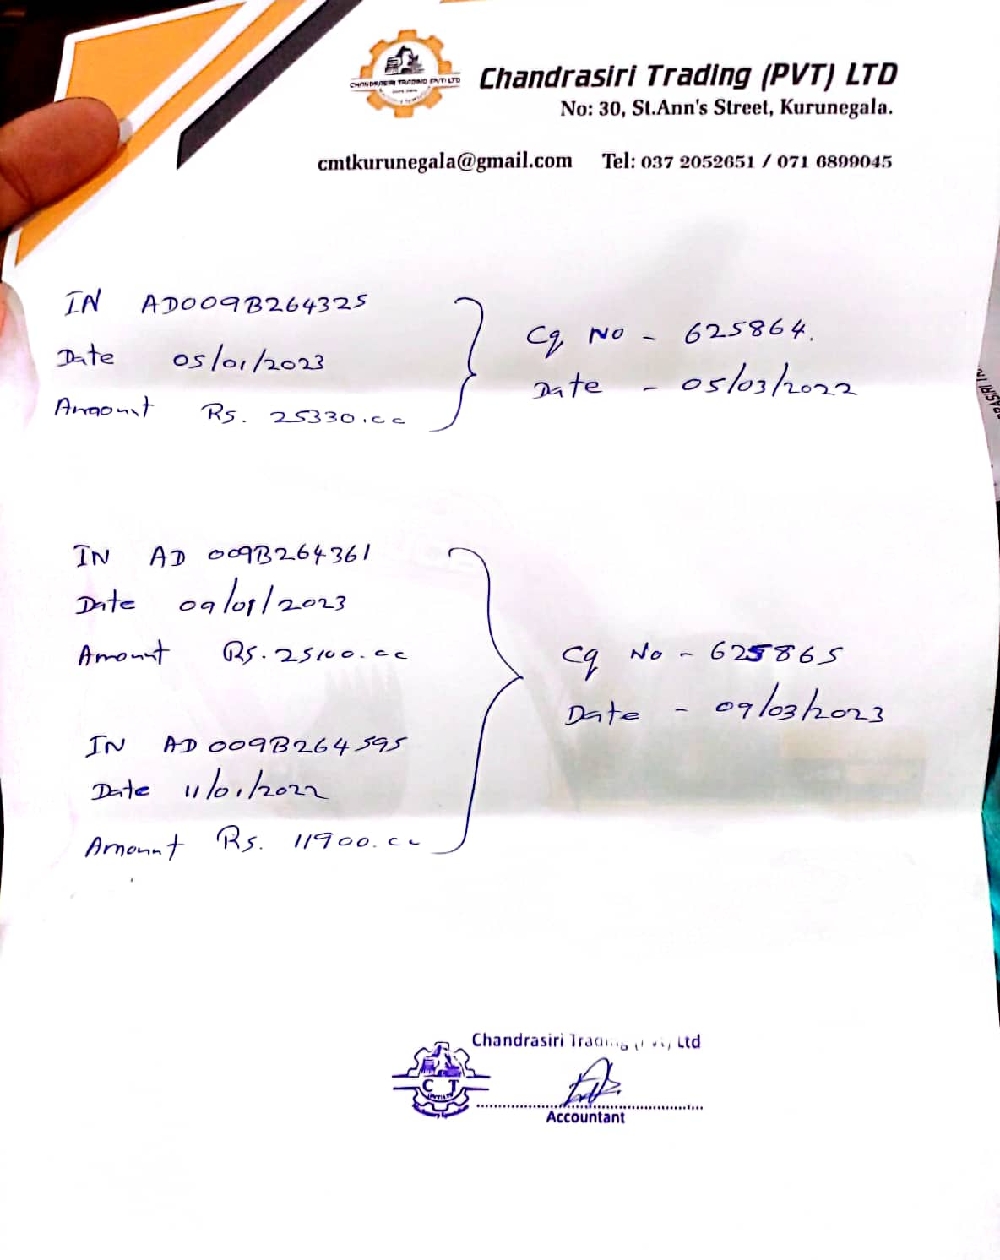 CHANDRASIRI TRADING (PVT) LTD
Chandrasiri Trading (PVT) LTD
No: 30, St.Ann's Street, Kurunegala.
cmtkurunegala@gmail.com Tel: 037 2052651 / 071 6899045
IN AD009B264325
Date 05/01/2023
Amount Rs. 25330.cc
Cq No - 625864.
Date - 05/03/2022
IN AD 009B264361
Date 09/01/2023
Amount Rs. 25100.cc
Cq No - 625865
Date - 09/03/2023
IN AD 009B264595
Date 11/01/2022
Amount Rs. 11900.cc
Chandrasiri Trading (Pvt) Ltd
C T
(PVT) LTD
Accountant